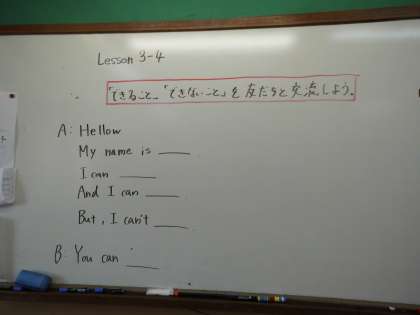 Lesson 3-4
「できること」「できないこと」を友だちと交流しよう。
A: Hellow
My name is ____
I can ____
And I can ____
But, I can't ____
B: You can ____